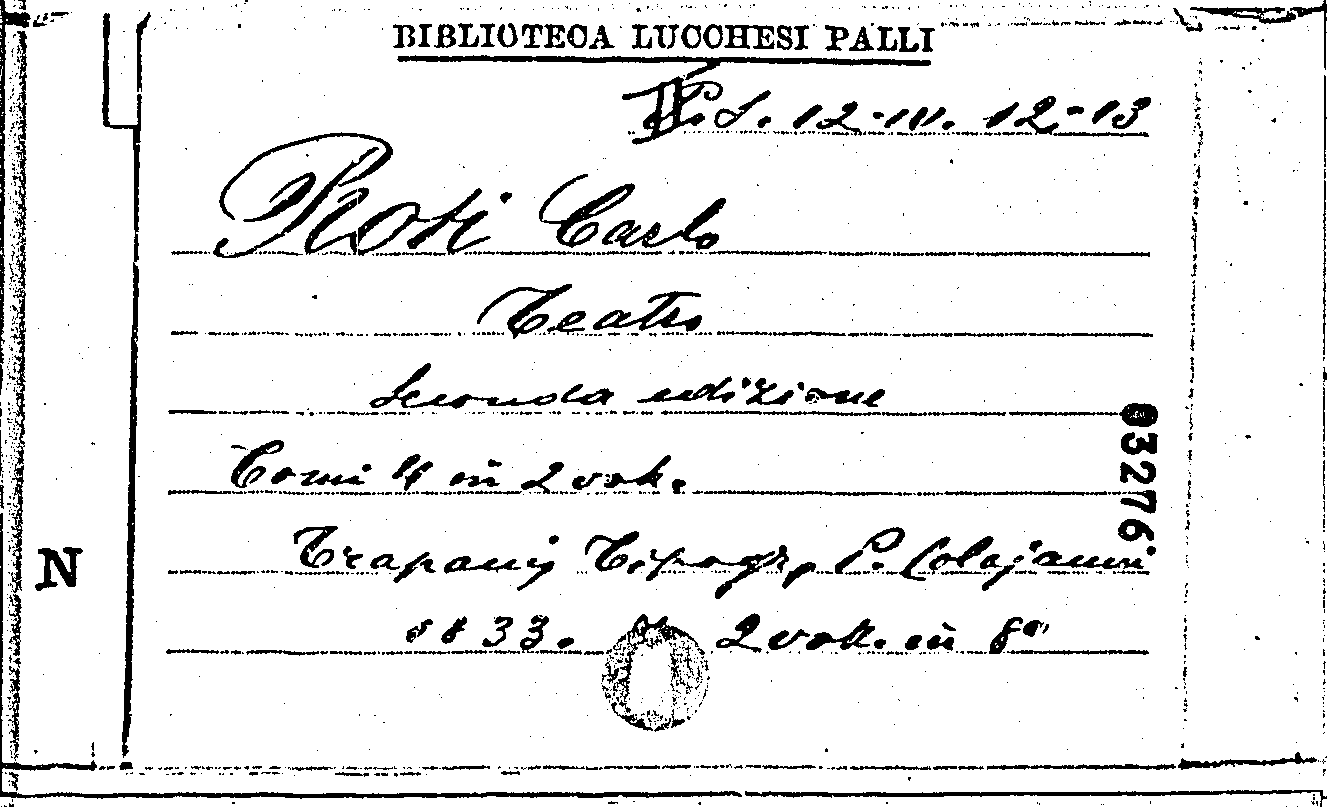 BIBLIOTECA LUCCHESI PALLI
P. S. 12-IV. 12-13
Roti Carlo
Teatro
Seconda edizione
Tomi 4 in 2 voll.
Trapani, Tipogr. P. Colajanni
1833. 2 voll. in 8º
83276
N